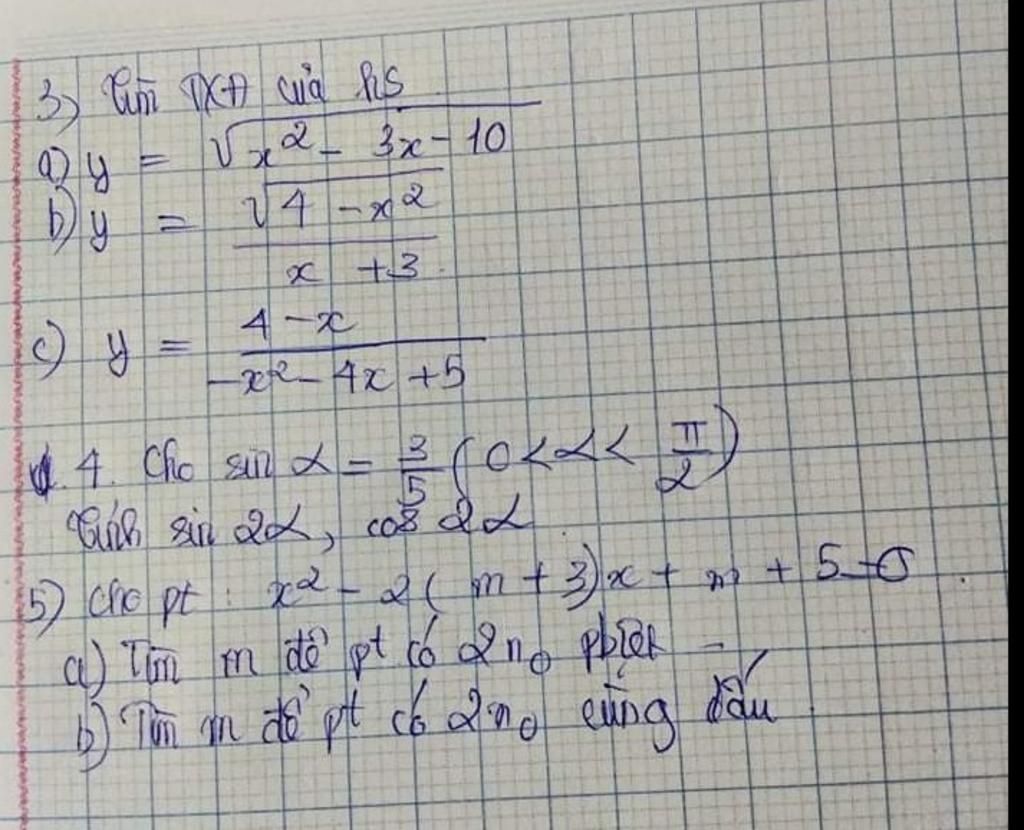 3) Tìm TXĐ của hs
a) y = √x² - 3x - 10
b) y = √4 - x² / x + 3
c) y = 4 - x / -x² - 4x + 5
4. Cho sin α = 3/5 (0 < α < π/2)
Tính sin 2α, cos 2α
5) Cho pt : x² - 2(m + 3)x + m + 5 = 0
a) Tìm m để pt có 2 n₀ pbiệt
b) Tìm m để pt có 2 n₀ cùng dấu